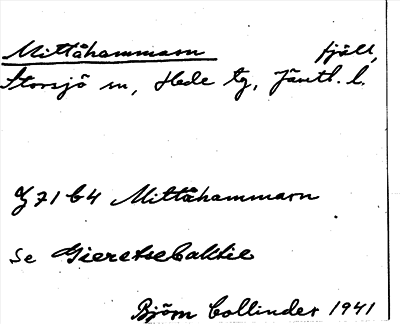 Mittåhammarn fjäll,
Storsjö sn, Hede tg, Jämtl. l.
G 71 b4 Mittåhammarn
Se Gieretsebaktie
Björn Collinder 1941